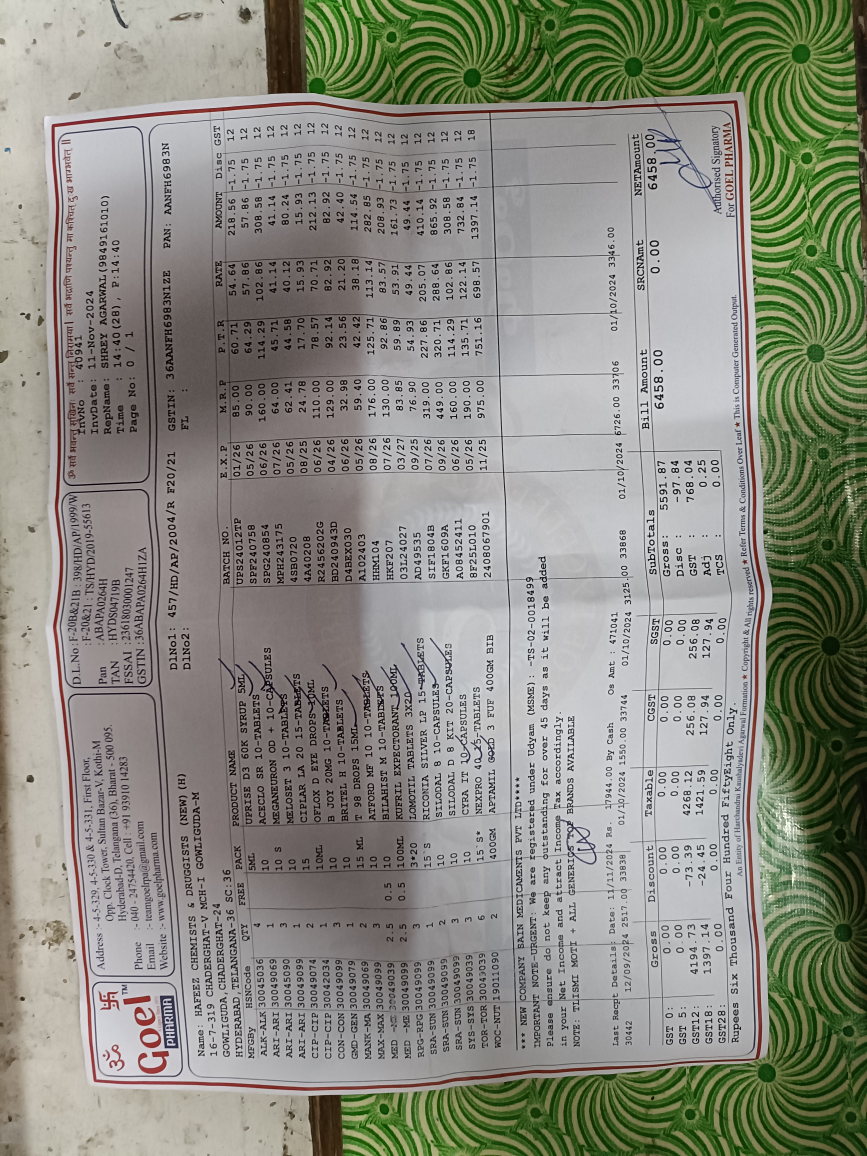 ॐ सर्वे भवन्तु सुखिनः सर्वे सन्तु निरामयाः। सर्वे भद्राणि पश्यन्तु मा कश्चित् दुःख भाग्भवेत् ॥
ॐ 卐
Goel™
PHARMA
Address :- 4-5-329, 4-5-330 & 4-5-331, First Floor,
Opp. Clock Tower, Sultan Bazar-V, Kothi-M
Hyderabad-D, Telangana (36), Bharat - 500 095.
Phone :- (040 - 24754420, Cell : +91 93910 14283
Email :- teamgoelpa@gmail.com
Website :- www.goelpharma.com
D.L.No: F-20B&21B : 398/HD/AP/1999/W
F-20&21 : TS/HYD/2019-55613
Pan : ABAPA0264H
TAN : HYDS04719B
FSSAI : 23618030001247
GSTIN : 36ABAPA0264H1ZA
InvNo : 40941
InvDate: 11-Nov-2024
RepName: SHREY AGARWAL(9849161010)
Time : 14:40(28), P:14:40
Page No: 0 / 1
Name: HAFEEZ CHEMISTS & DRUGGISTS (NEW) (H)
16-7-319 CHADERGHAT-V MCH-I GOWLIGUDA-M
GOWLIGUDA, CHADERGHAT-24
HYDERABAD, TELANGANA-36 SC:36
DlNo1: 457/HD/AP/2004/R F20/21 GSTIN: 36AANFH6983N1ZE PAN: AANFH6983N
DlNo2: FL :
MFGBy HSNCode QTY FREE PACK PRODUCT NAME BATCH NO. E.X.P M.R.P P.T.R RATE AMOUNT Disc GST
ALK-ALK 30045036 4 5ML UPRISE D3 60K SYRUP 5ML UPS24012TP 01/26 85.00 60.71 54.64 218.56 -1.75 12
ARI-ARI 30049069 1 10 S ACECLO SR 10-TABLETS SPF240758 05/26 90.00 64.29 57.86 57.86 -1.75 12
ARI-ARI 30045090 3 10 MEGANEURON OD + 10-CAPSULES SPG240854 06/26 160.00 114.29 102.86 308.58 -1.75 12
ARI-ARI 30049099 1 10 MELOSET 3 10-TABLETS MPH243175 07/26 64.00 45.71 41.14 41.14 -1.75 12
CIP-CIP 30049074 2 15 CIPLAR LA 20 15-TABLETS 4SB0720 05/26 62.41 44.58 40.12 80.24 -1.75 12
CIP-CIP 30042034 1 10ML OFLOX D EYE DROPS 10ML 4A40208 08/25 24.78 17.70 15.93 15.93 -1.75 12
CON-CON 30049099 3 10 B JOY 20MG 10-TABLETS R2456202G 06/26 110.00 78.57 70.71 212.13 -1.75 12
GMD-GEN 30049079 1 10 BRITEL H 10-TABLETS BD240943D 04/26 129.00 92.14 82.92 82.92 -1.75 12
MANK-MA 30049099 2 15 ML T 98 DROPS 15ML D4BEX030 06/26 32.98 23.56 21.20 42.40 -1.75 12
MAX-MAX 30049099 3 10 ATFORD MF 10 10-TABLETS A102403 05/26 59.40 42.42 38.18 114.54 -1.75 12
MED 30049039 2.5 0.5 10 BILAHIST M 10-TABLETS HHM104 08/26 176.00 125.71 113.14 282.85 -1.75 12
MED 30049099 2.5 0.5 100ML KUFRIL EXPECTORANT 100ML HKF207 07/26 130.00 92.86 83.57 208.93 -1.75 12
RPG-RPG 30049099 3 3*20 LOMOTIL TABLETS 3X20 03L24027 03/27 83.85 59.89 53.91 161.73 -1.75 12
SRA-SUN 30049099 1 15`S RICONIA SILVER LP 15-TABLETS AD49535 09/25 76.90 54.93 49.44 49.44 -1.75 12
SRA-SUN 30049099 2 10 SILODAL 8 10-CAPSULES SIF1804B 07/26 319.00 227.86 205.07 410.14 -1.75 12
SRA-SUN 30049099 3 10 SILODAL D 8 KIT 20-CAPSULES GKF1609A 09/26 449.00 320.71 288.64 865.92 -1.75 12
SYS-SYS 30049039 3 10 CYRA IT 10-CAPSULES A08452411 06/26 160.00 114.29 102.86 308.58 -1.75 12
TOR-TOR 30049039 6 15`S* NEXPRO 40 15-TABLETS 8F25L010 05/26 190.00 135.71 122.14 732.84 -1.75 12
WOC-NUT 19011090 2 400GM APTAMIL GOLD 3 FUF 400GM BIB 2408067901 11/25 975.00 751.16 698.57 1397.14 -1.75 18
*** NEW COMPANY SAIN MEDICAMENTS PVT LTD****
IMPORTANT NOTE-URGENT: We are registered under Udyam (MSME): -TS-02-0018499
Please ensure do not keep any outstanding for over 45 days as it will be added
in your Net Income and attract Income Tax accordingly.
NOTE: TUISMI MOTI + ALL GENERICS TOP BRANDS AVAILABLE
Last Recpt Details: Date: 11/11/2024 Rs. 17944.00 By Cash Os Amt : 471041
30442 12/09/2024 2517.00 33838 01/10/2024 1550.00 33744 01/10/2024 3125.00 33868 01/10/2024 6726.00 33706 01/10/2024 3346.00
Gross Discount Taxable CGST SGST SubTotals Bill Amount SRCNAmt NETAmount
GST 0: 0.00 0.00 0.00 0.00 0.00 Gross: 5591.87 6458.00 0.00 6458.00
GST 5: 0.00 0.00 0.00 0.00 0.00 Disc : -97.84
GST12: 4194.73 -73.39 4268.12 256.08 256.08 GST : 768.04
GST18: 1397.14 -24.45 1421.59 127.94 127.94 Adj : 0.25
GST28: 0.00 0.00 0.00 0.00 0.00 TCS : 0.00
Rupees Six Thousand Four Hundred FiftyEight Only.
Authorised Signatory
For GOEL PHARMA
An Entity of Harshandrai Kaushalyadevi Agarwal Formation ★ Copyright & All rights reserved ★ Refer Terms & Conditions Over Leaf ★ This is Computer Generated Output.